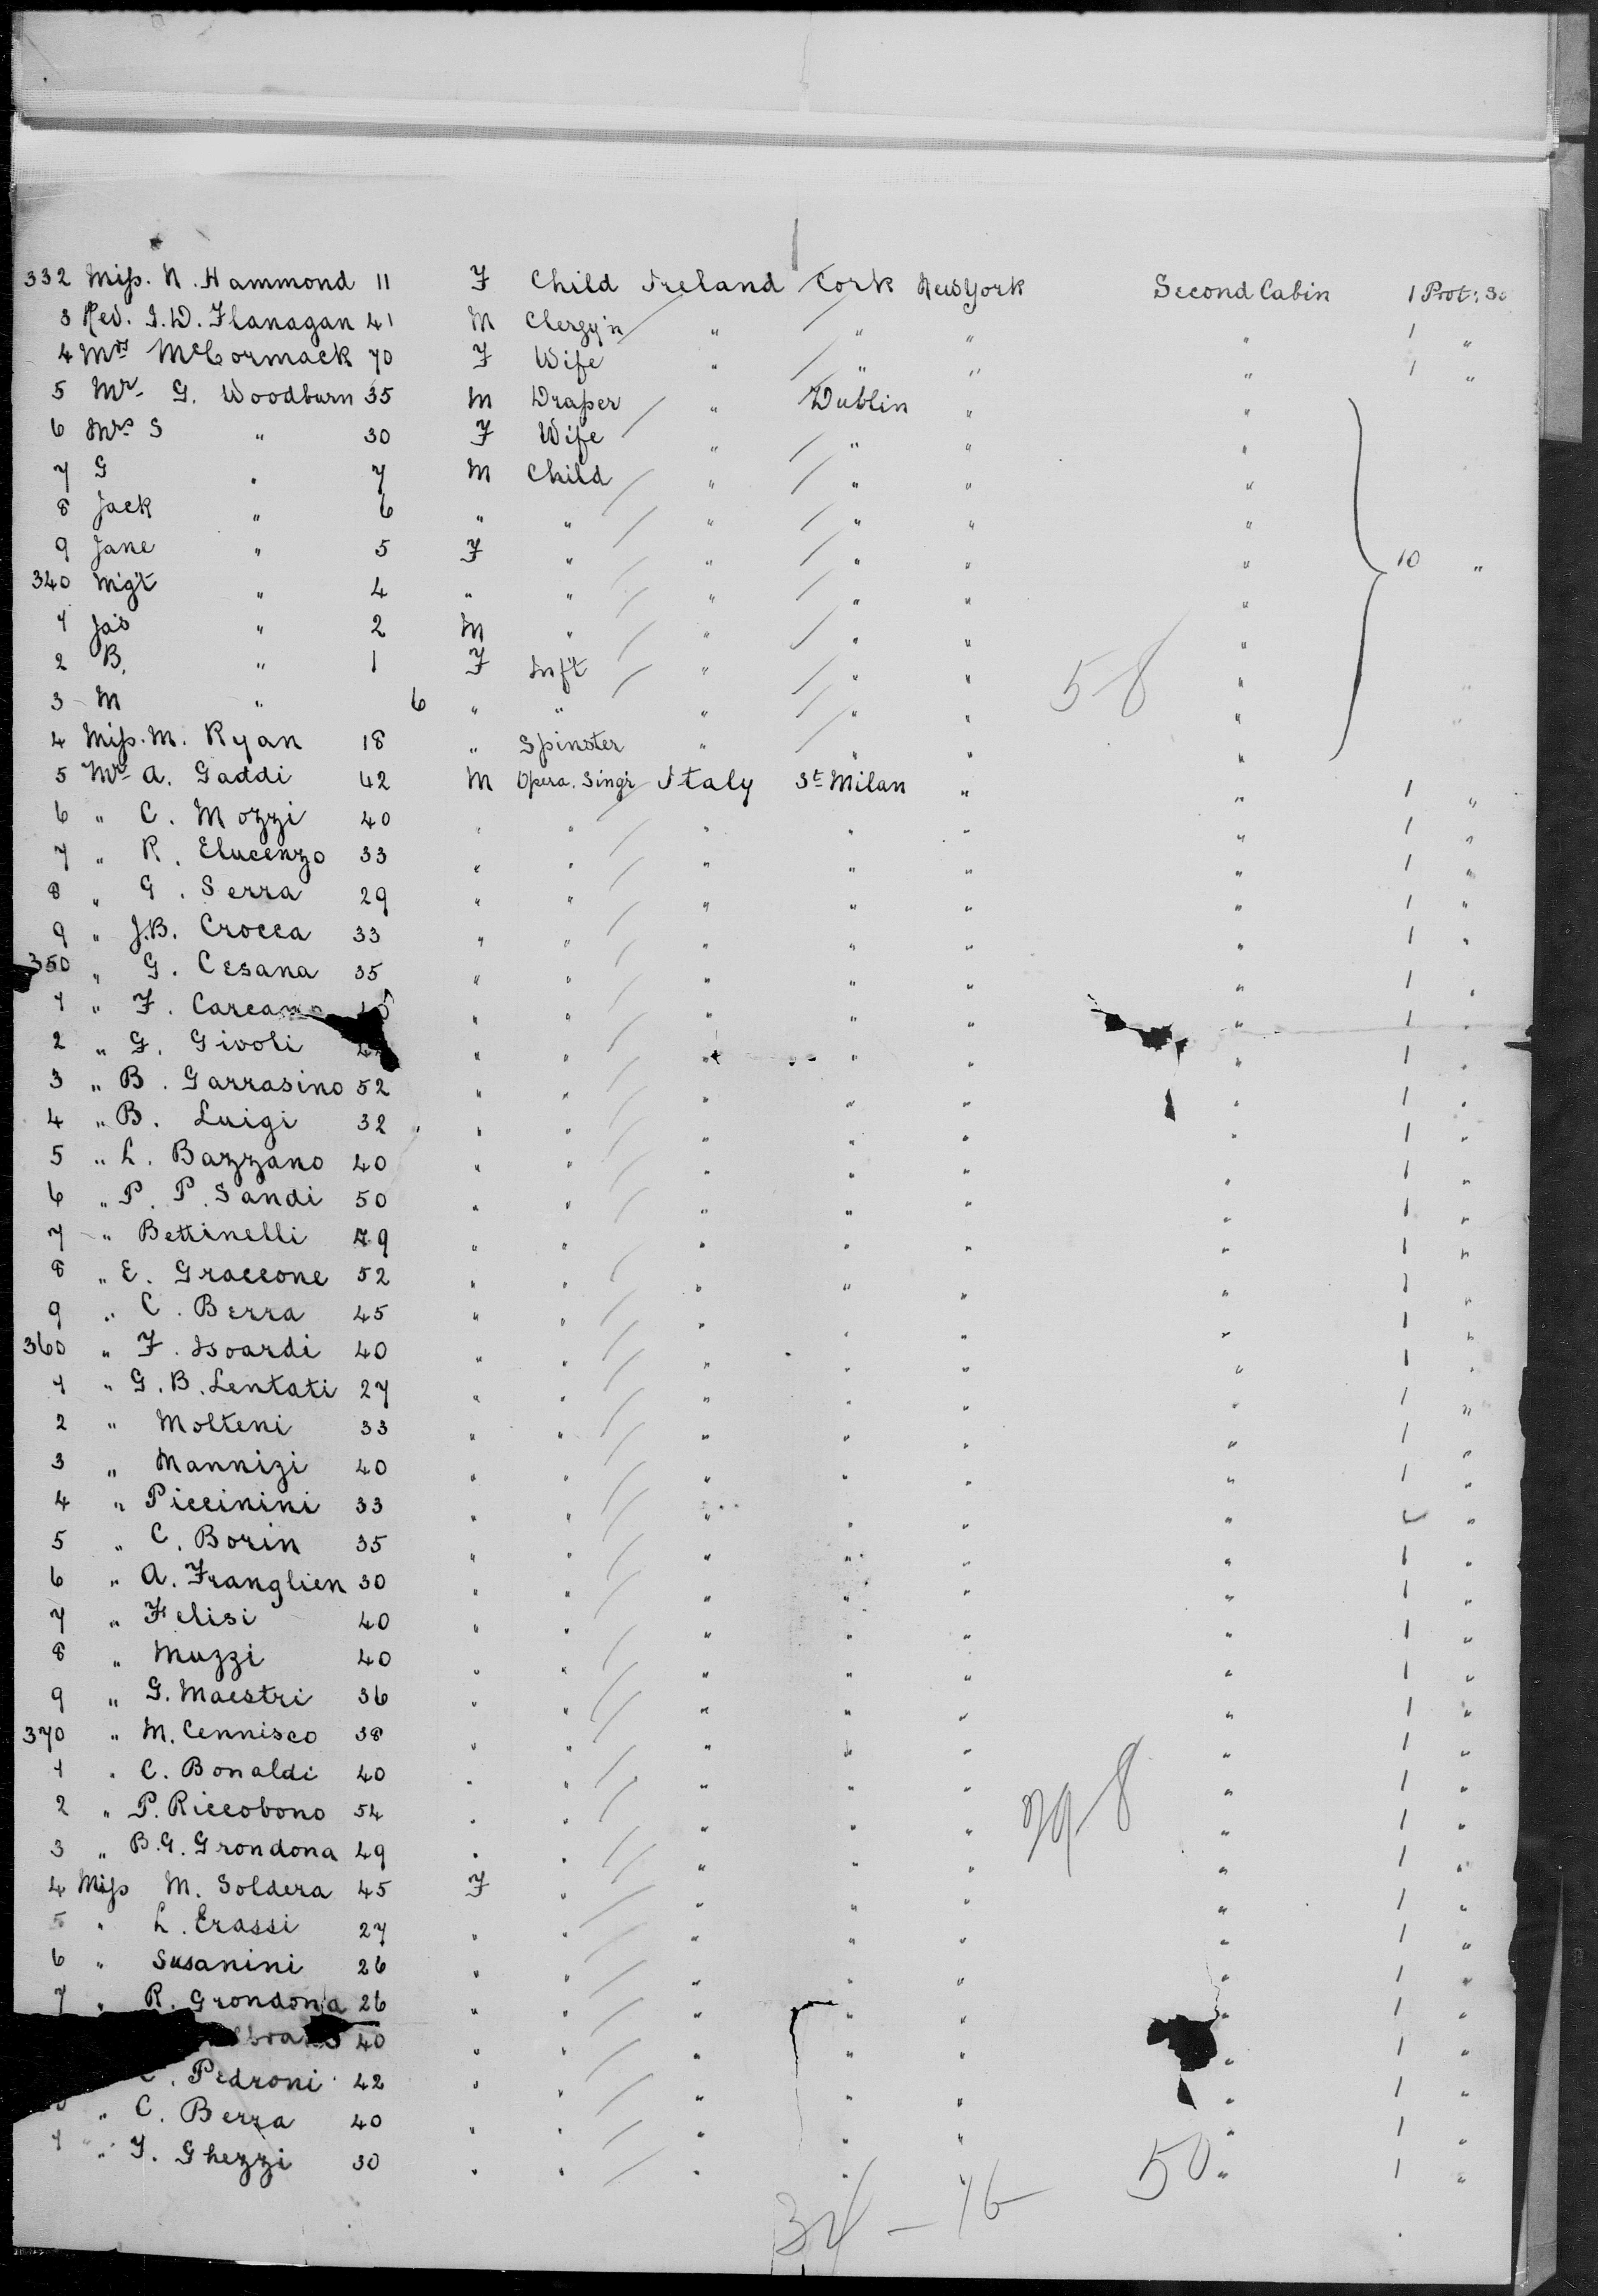 332 Miss. N. Hammond 11 F Child Ireland Cork New York Second Cabin 1 Prot:
3 Rev. J.W. Flanagan 41 M Clergy'n " " " " 1 "
4 Mrs McCormack 70 F Wife " " " " 1 "
5 Mr. G. Woodburn 35 M Draper " Dublin " "
6 Mrs S " 30 F Wife " " " "
7 G " 7 M Child " " " "
8 Jack " 6 " " " " " "
9 Jane " 5 F " " " " " 10 "
340 Mgt " 4 " " " " " "
1 Jas " 2 M " " " " "
2 B. " 1 F Inf't " " " "
58
3 M " 6 " " " " " " "
4 Miss. M. Ryan 18 " Spinster " " " "
5 Mr A. Gaddi 42 M Opera. Sing'r Italy St Milan " " 1 "
6 " C. Mozzi 40 " " " " " " 1 "
7 " R. Elucenzo 33 " " " " " " 1 "
8 " G. Serra 29 " " " " " " 1 "
9 " J.B. Crocca 33 " " " " " " 1 "
350 " G. Cesana 35 " " " " " " 1 "
1 " F. " " " " " " 1 "
2 " G. Givoli " " " " " " 1 "
3 " B. Garrasino 52 " " " " " " 1 "
4 " B. Luigi 32 " " " " " " 1 "
5 " L. Bazzano 40 " " " " " " 1 "
6 " P. P. Sandi 50 " " " " " " 1 "
7 " Bettinelli " " " " " " 1 "
8 " E. Graccone 52 " " " " " " 1 "
9 " C. Berra 45 " " " " " " 1 "
360 " F. Isoardi 40 " " " " " " 1 "
1 " G. B. Lentati 27 " " " " " " 1 "
2 " Molteni 33 " " " " " " 1 "
3 " Mannizi 40 " " " " " " 1 "
4 " Piccinini 33 " " " " " " 1 "
5 " C. Borin 35 " " " " " " 1 "
6 " A. Franglien 30 " " " " " " 1 "
7 " Felisi 40 " " " " " " 1 "
8 " Muzzi 40 " " " " " " 1 "
9 " G. Maestri 36 " " " " " " 1 "
370 " M. Cennisco 38 " " " " " " 1 "
1 " C. Bonaldi 40 " " " " " " 1 "
2 " P. Riccobono 54 " " " " " " 1 "
3 " B.G. Grondona 49 " " " " " " 1 "
4 Miss M. Soldera 45 F " " " " " 1 "
5 " L. Erassi 27 " " " " " " 1 "
6 " Susanini 26 " " " " " " 1 "
7 " R. Grondona 26 " " " " " " 1 "
40 " " " " " " 1 "
Pedroni 42 " " " " " " 1 "
" C. Berra 40 " " " " " " 1 "
1 " Ghezzi 30 " " " " " " 1 "
50
34 – 16